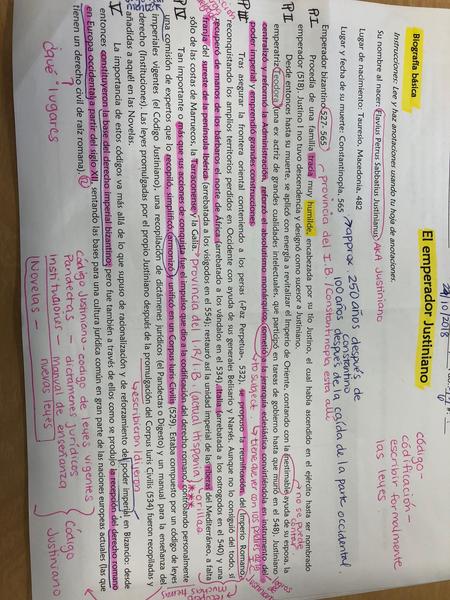 29/10/2018
El emperador Justiniano
Biografía básica
Instrucciones: Lee y haz anotaciones usando tu hoja de anotaciones.
Su nombre al nacer: (Flavius Petrus Sabbatius Justinianus) AKA Justiniano
Lugar de nacimiento: Tauresio, Macedonia, 482
Lugar y fecha de su muerte: Constantinopla, 565
→aprox. 250 años después de
constantino
100 años después de la caída de la parte occidental.
código -
codificación -
escribir formalmente
las leyes.
Emperador bizantino (527-565)
provincia del I.B/Constantinopla está allí
P.I
Procedía de una familia tracia muy humilde, encabezada por su tío Justino, el cual había ascendido en el ejército hasta ser nombrado
emperador (518). Justino I no tuvo descendencia y designó como sucesor a Justiniano.
P.II
Desde entonces hasta su muerte, se aplicó con energía a revitalizar el Imperio de Oriente, contando con la inestimable ayuda de su esposa, la
emperatriz Teodora (una ex actriz de grandes cualidades intelectuales, que participó en tareas de gobierno hasta que murió en el 548). Justiniano
centralizó y reformó la Administración, reforzó el absolutismo monárquico, sometió a la jerarquía eclesiástica convirtiéndola en instrumento del
poder imperial y emprendió grandes construcciones.
no se puede
to subject
P III
Tras asegurar la frontera oriental conteniendo a los persas («Paz Perpetua», 532), se propuso la reunificación del Imperio Romano
reconquistando los amplios territorios perdidos en Occidente con ayuda de sus generales Belisario y Narsés. Aunque no lo consiguió del todo, sí
recuperó de manos de los bárbaros el norte de África (arrebatada a los vándalos en el 534), Italia (arrebatada a los ostrogodos en el 540) y una
franja del sureste de la península Ibérica (arrebatada a los visigodos en el 554); restauró así la unidad imperial de las riberas del Mediterráneo, a falta
sólo de las costas de Marruecos, la Tarraconense y la Galia.
Provincia del I.R/I.B. (actual Hispania)
orillas
P IV
Tan importante o más que sus acciones de conquista fue el impulso que dio a la codificación del derecho romano, controlando personalmente
una comisión de expertos que lo recopiló, simplificó (armonizó) y unificó en un Corpus Iuris Civilis (529). Estaba compuesto por un código de leyes
imperiales vigentes (el Código Justiniano), una recopilación de dictámenes jurídicos (el Pandectas o Digesto) y un manual para la enseñanza del
derecho (Instituciones). Las leyes promulgadas por el propio Justiniano después de la promulgación del Corpus Iuris Civilis (534) fueron recopiladas y
añadidas a aquél en las Novelas.
V
La importancia de estos códigos va más allá de lo que supuso de racionalización y de reforzamiento del poder imperial en Bizancio: desde
entonces constituyeron la base del derecho imperial bizantino; pero fue también a través de ellos como se produjo la recepción del derecho romano
en Europa occidental a partir del siglo XII, sentando las bases para una cultura jurídica común en gran parte de las naciones europeas actuales (las que
tienen un derecho civil de raíz romana).
¿qué lugares
código Justiniano - código de leyes vigentes
Pandectas - dictámenes jurídicos
Instituciones - manual de enseñanza
Novelas - nuevas leyes
Código
Justiniano